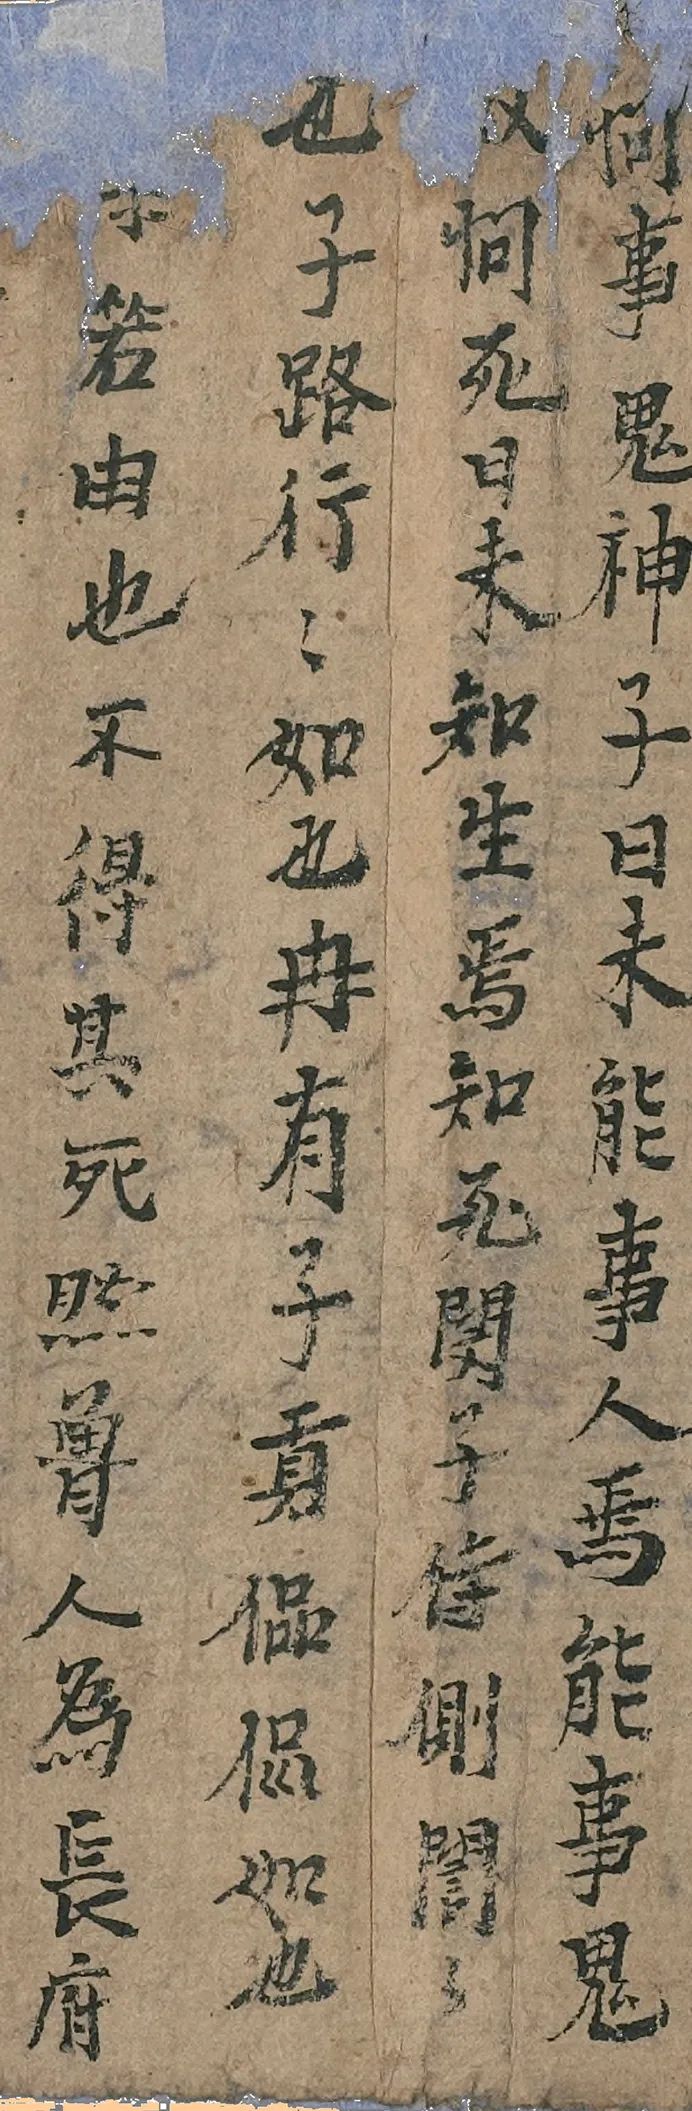 問事鬼神子曰未能事人焉能事鬼
又問死曰未知生焉知死閔子侍側誾〻
也子路行〻如也冉有子貢侃侃如也
若由也不得其死然魯人為長府